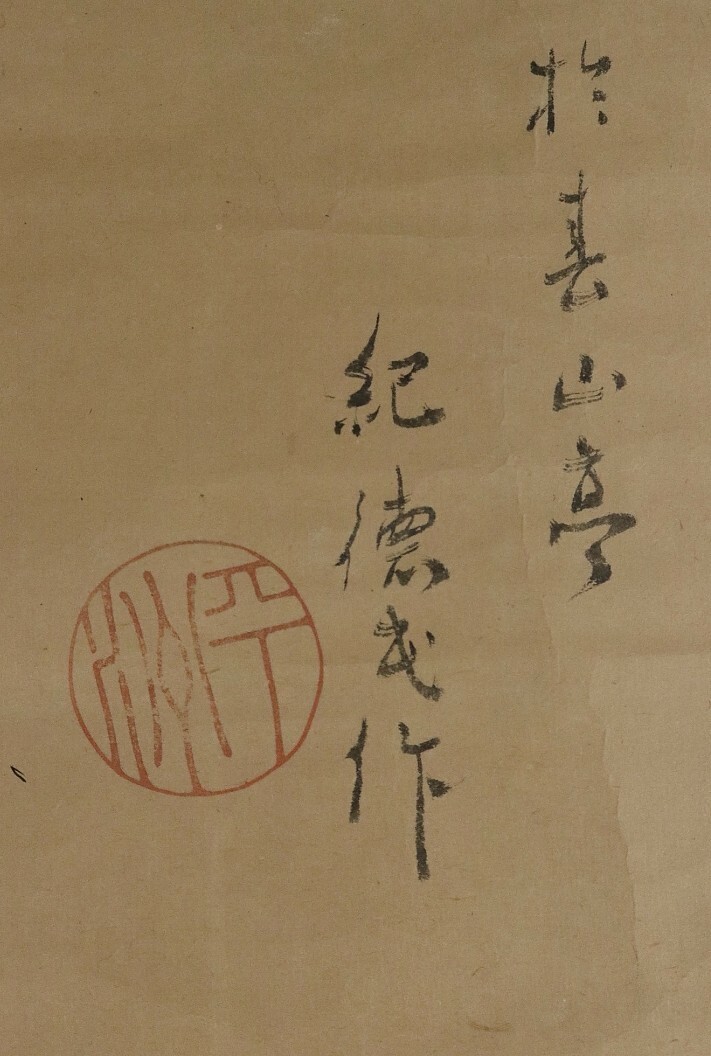 於春山亭
紀徳民作
平洲